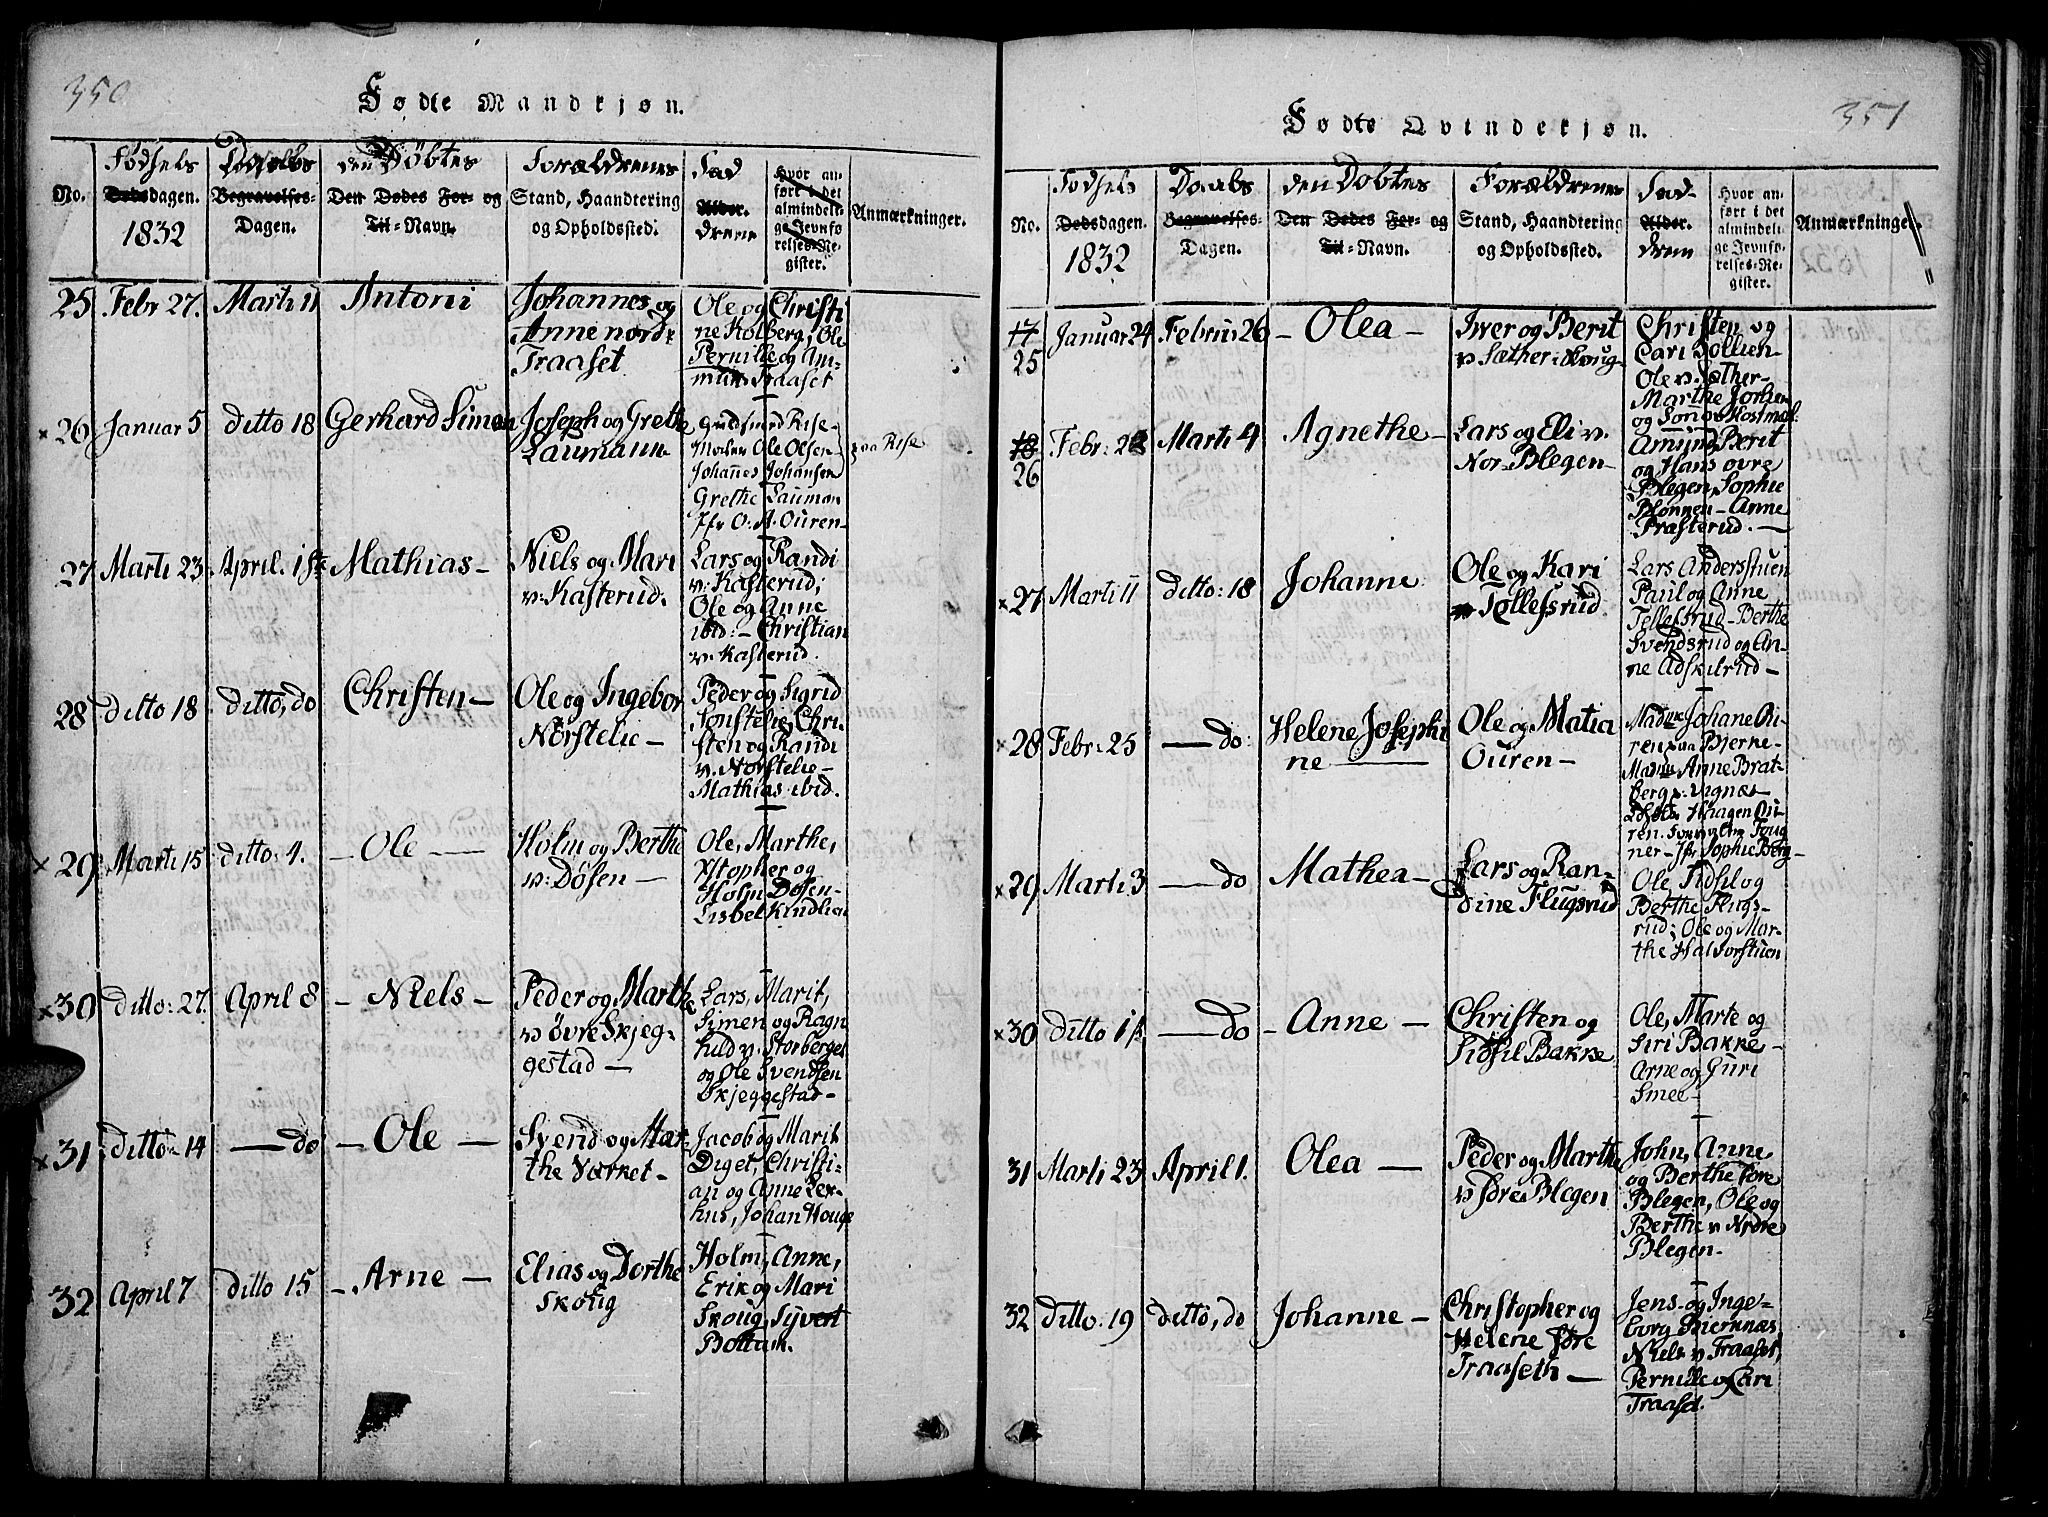 350
Fødte Mandkjøn.
No.
Fødsels
Dødsdagen.
1832
Daabs
Begravelses-
Dagen.
den Døbtes
Den Dødes For- og
Til-Navn.
Forældrenes
Stand, Haandtering
og Opholdssted.
Fad
Alder.
drene
Hvor an-
ført i det
almindeli-
ge Jevnfø-
relses-Re-
gister.
Anmærkninger.
25 Febr 27. Marti 11 Antoni
Johannes og
Anne nordr
Traaset
Ole og Christi
ne Kolberg, Ole
Pernille og Am-
mun Traaset
× 26 Januar 5 ditto 18 Gerhard Simon
Joseph og Grethe
Laumann
Gudsmed Rise-
Ole Olsen-
Johannes Johansen
Grethe Lauman
Jfr O. A. Ouren-
paa Rise
27 Marti 23. April. 1ste Mathias-
Niels og Mari
v: Kasterud.
Lars og Randi
v: Kasterud;
Ole og Anne
ibid:- Christian
v: Kasterud.
28 ditto 18 ditto, do Christen-
Ole og Ingebor
Nørstelie-
Peder og Sigrid
Sønstelie, Chri-
sten og Randi
v. Nørstelie-
Mathias ibid.
× 29 Marti 15 ditto: 4. - Ole -
Holm og Berthe
v: Døsen -
Ole, Marthe,
Xstopher og
Holm Døsen-
Lisbet Kindlien
× 30 ditto: 27. April 8 - Niels -
Peder og Marthe
v øvre Skjeg-
gestad -
Lars, Marit,
Simen og Ragn
hild v. Storberget
og Ole Svendsen
Skjeggestad-
× 31 ditto 14 - do - Ole -
Svend og Mar-
the Værket-
Jacob og Marit
Diget, Christi-
an og Anne Lex-
hus, Johan Houge
32 April 7 ditto 15 - Arne -
Elias og Dorthe
Skoug
Holm, Anne,
Erik og Mari
Skoug, Syvert
Bottam.
351
Fødte Qvindekjøn.
No.
Fødsels
Dødsdagen.
1832
Daabs
Begravelses-
Dagen.
den Døbtes
Den Dødes For- og
Til-Navn.
Forældrenes
Stand, Haandtering
og Opholdssted.
Fad-
Alder.
drene
Hvor an-
ført i det
almindeli-
ge Jevnfø-
relses-Re-
gister.
Anmærkninger.
17
25 Januar 24 Febrūi 26 - Olea -
Iwer og Berit
v Sæther i Skoug-
Christen og
Cari Sollien-
Ole v. Sæther-
Marthe Sollien
og
18
26 Febr: 22 Marti 4 Agnethe-
Lars og Eli v.
Nor-Blegen-
Amund, Berit
og Hans øvre
Blegen, Sophie
Blønnen- Anne
Prasterud. -
× 27 Marti 11 ditto: 18 Johanne
Ole og Kari
v Tollefsrud.
Lars Andersstuen
Paul og Anne
Tollefsrud- Berthe
Svendsrud og An-
ne Adskilrud-
× 28 Febr: 25 - do: Helene Josephi
ne -
Ole og Matia
Ouren-
Madme Johane Ou-
ren paa Bjerne-
Madme Anne Brat-
berg v: Vignæs
Haagen Ou-
ren. Foug
ner- Jfr Sophie Berg-
× 29 Marti 3 - do Mathea-
Lars og Ran-
dine Flugsrud
Ole, Sidsil og
Berthe Flugs-
rud; Ole og Mar-
the Halvorstuen
× 30 ditto - do - Anne -
Christen og
Sidsil Bakke
Ole, Marte og
Siri Bakke-
Arne og Guri
Smee-
31 Marti 23 April 1. Olea -
Peder og Marthe
v søre Blegen
John, Anne
og Berthe søre
Blegen, Ole og
Berthe v Nordre
Blegen-
32 ditto: 19 ditto, do Johanne-
Christopher og
Helene søre
Traaseth-
Jens og Inge-
borg Bierknæs
Niels v Traaset,
Pernille og Cari
Traaset.